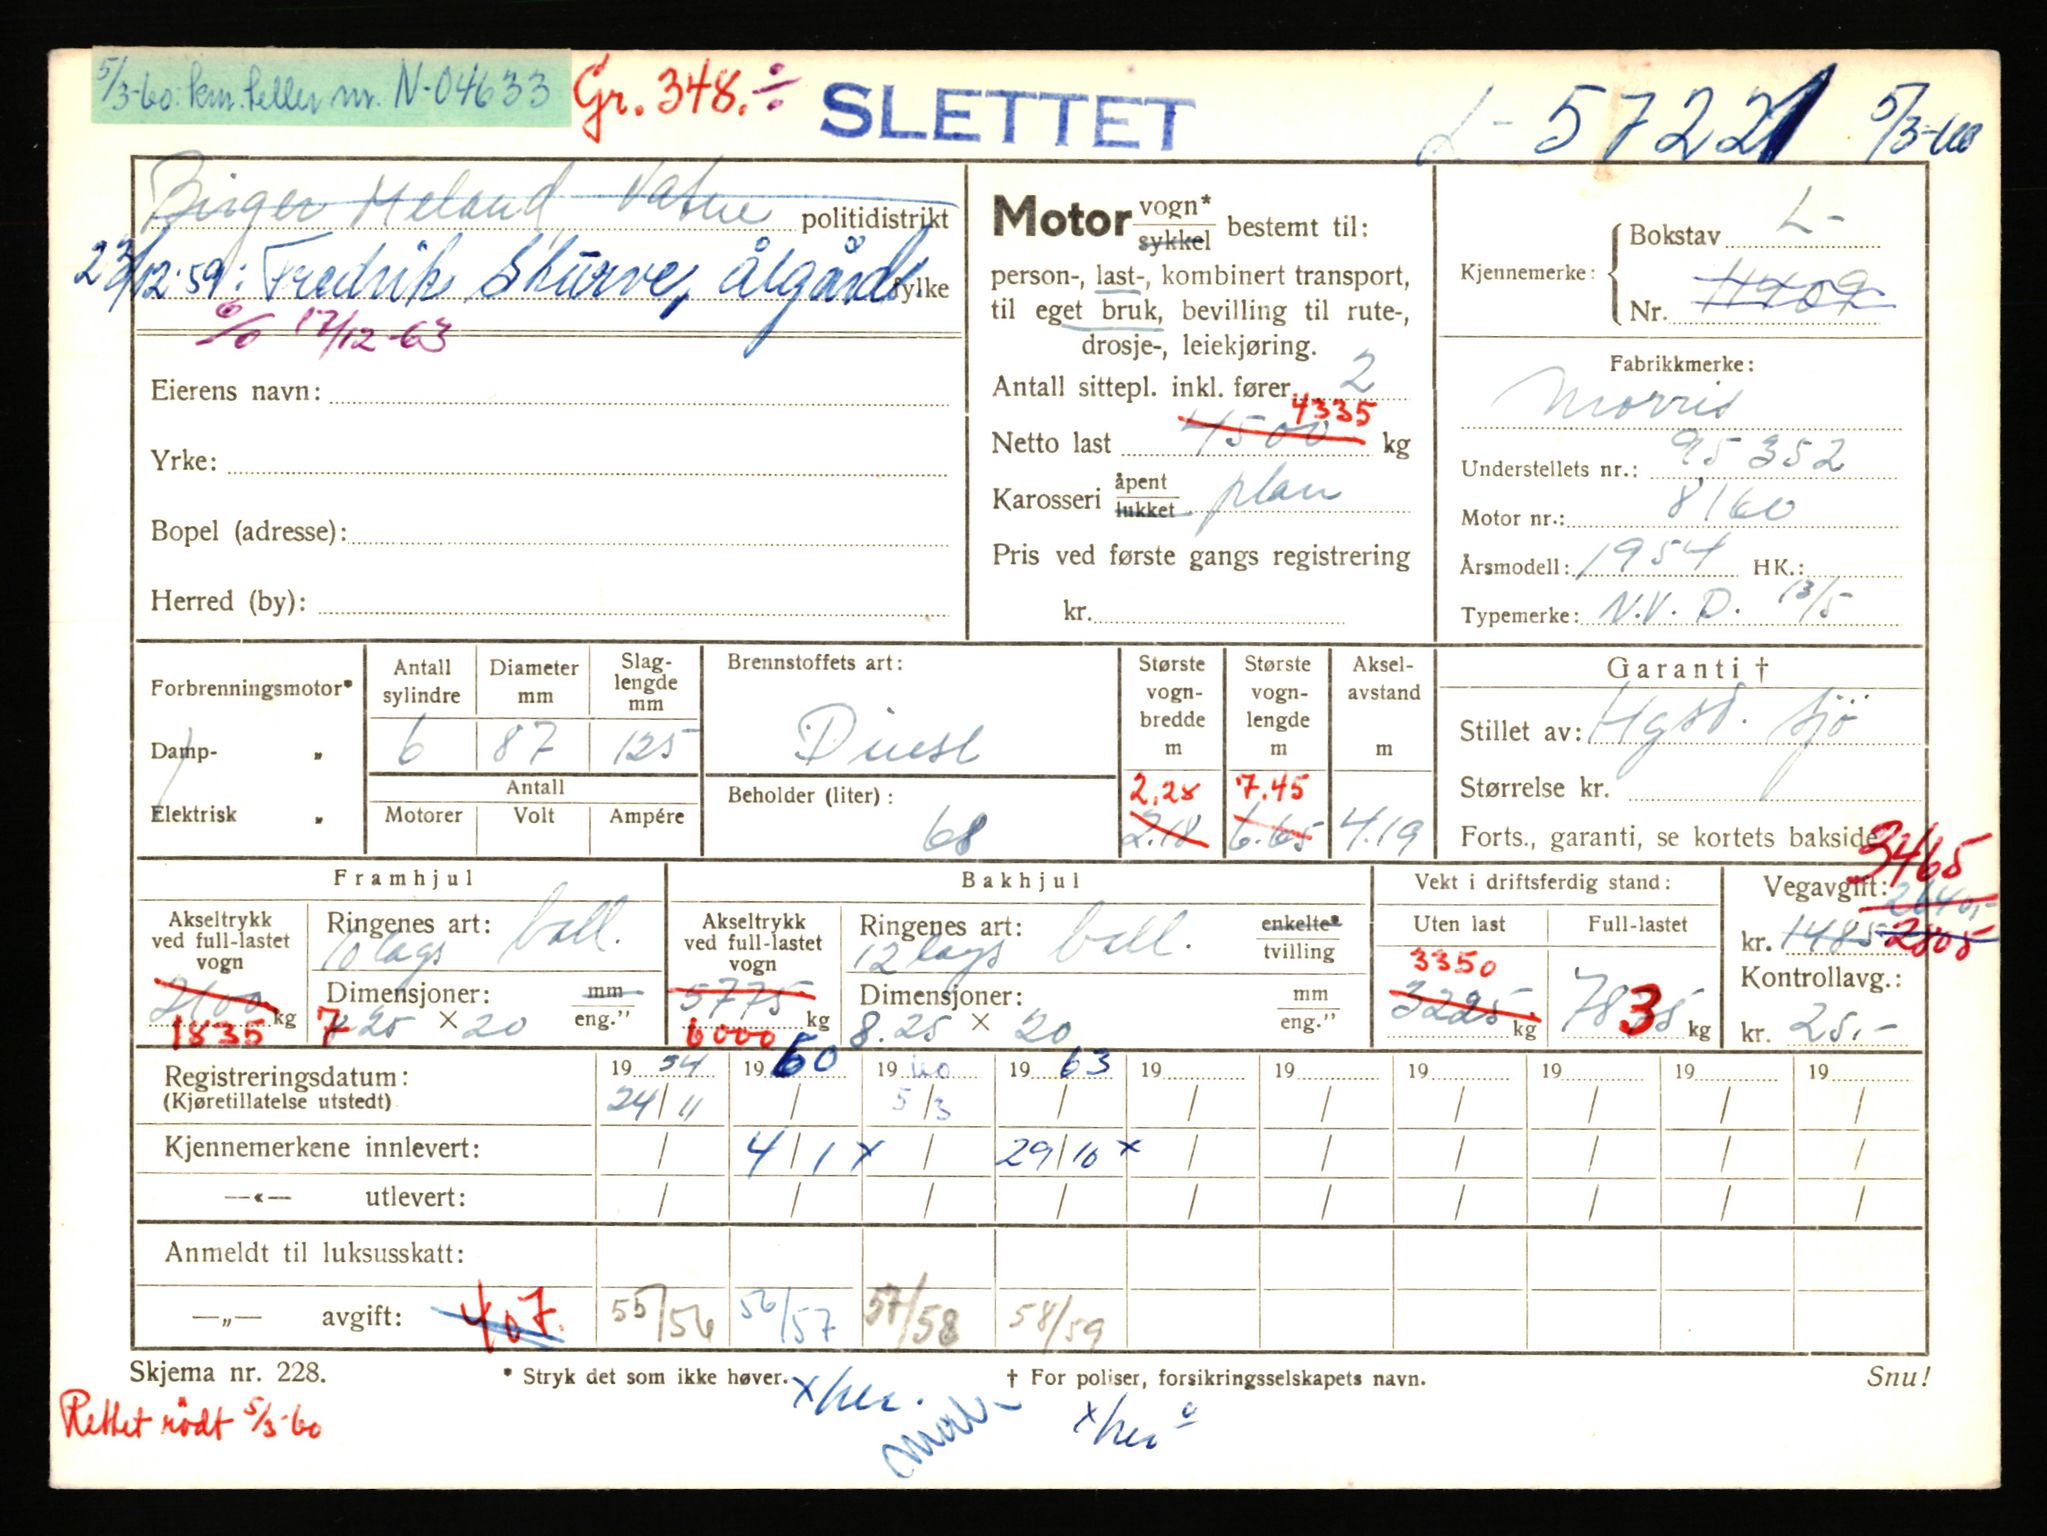 5/3-60: km.teller nr. N-04633 Gr. 348. ÷ SLETTET L- 57221 5/3-60
Birger Meland Vatne politidistrikt
23/12-59: Fredrik Skurve, Ålgård. fylke
% 17/12-63
Eierens navn:
Yrke:
Bopel (adresse):
Herred (by):
Motor vogn* sykkel bestemt til:
person-, last-, kombinert transport,
til eget bruk, bevilling til rute-,
drosje-, leiekjøring.
Antall sittepl. inkl. fører 2
4335
Netto last 4500 kg
Karosseri åpent lukket plan
Pris ved første gangs registrering
kr.
Kjennemerke: Bokstav L-
Nr.
Fabrikkmerke:
Morris
Understellets nr.: 95352
Motor nr.: 8160
Årsmodell: 1954 HK.:
Typemerke: N.V.D. 13/5
Forbrenningsmotor*
Damp- „
Elektrisk „
Antall sylindre Diameter mm Slag-lengde mm
6 87 125
Antall
Motorer Volt Ampére
Brennstoffets art:
Diesel
Beholder (liter): 68
Største vogn-bredde m Største vogn-lengde m Aksel-avstand m
2,28 7.45
2.18 6.65 4.19
Garanti †
Stillet av: Hgsd. Sjö
Størrelse kr.
Forts., garanti, se kortets bakside
Framhjul
Akseltrykk ved full-lastet vogn
2100 kg
1835
Ringenes art: 10 lags ball.
Dimensjoner: mm eng."
7 25 × 20
Bakhjul
Akseltrykk ved full-lastet vogn
5775 kg
6000
Ringenes art: 12 lags ball. enkelte* tvilling
Dimensjoner: mm eng."
8.25 × 20
Vekt i driftsferdig stand:
Uten last Full-lastet
3350
3225 kg 7835 kg
3465
Vegavgift: 2640,-
kr. 1485 2805
Kontrollavg.:
kr. 25.-
Registreringsdatum: 1954 1960 1960 1963 19 19 19 19 19 19
(Kjøretillatelse utstedt) 24/11 / 5/3 / / / / / / /
Kjennemerkene innlevert: / 4/1 x / 29/10 x / / / / / /
—«— utlevert: / / / / / / / / / /
Anmeldt til luksusskatt:
—„— avgift: 407. 55/56 56/57 57/58 58/59
Skjema nr. 228. * Stryk det som ikke høver. † For poliser, forsikringsselskapets navn. Snu!
x her. x her
Rettet rødt 5/3-60